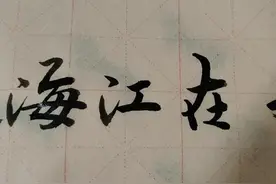 海江在